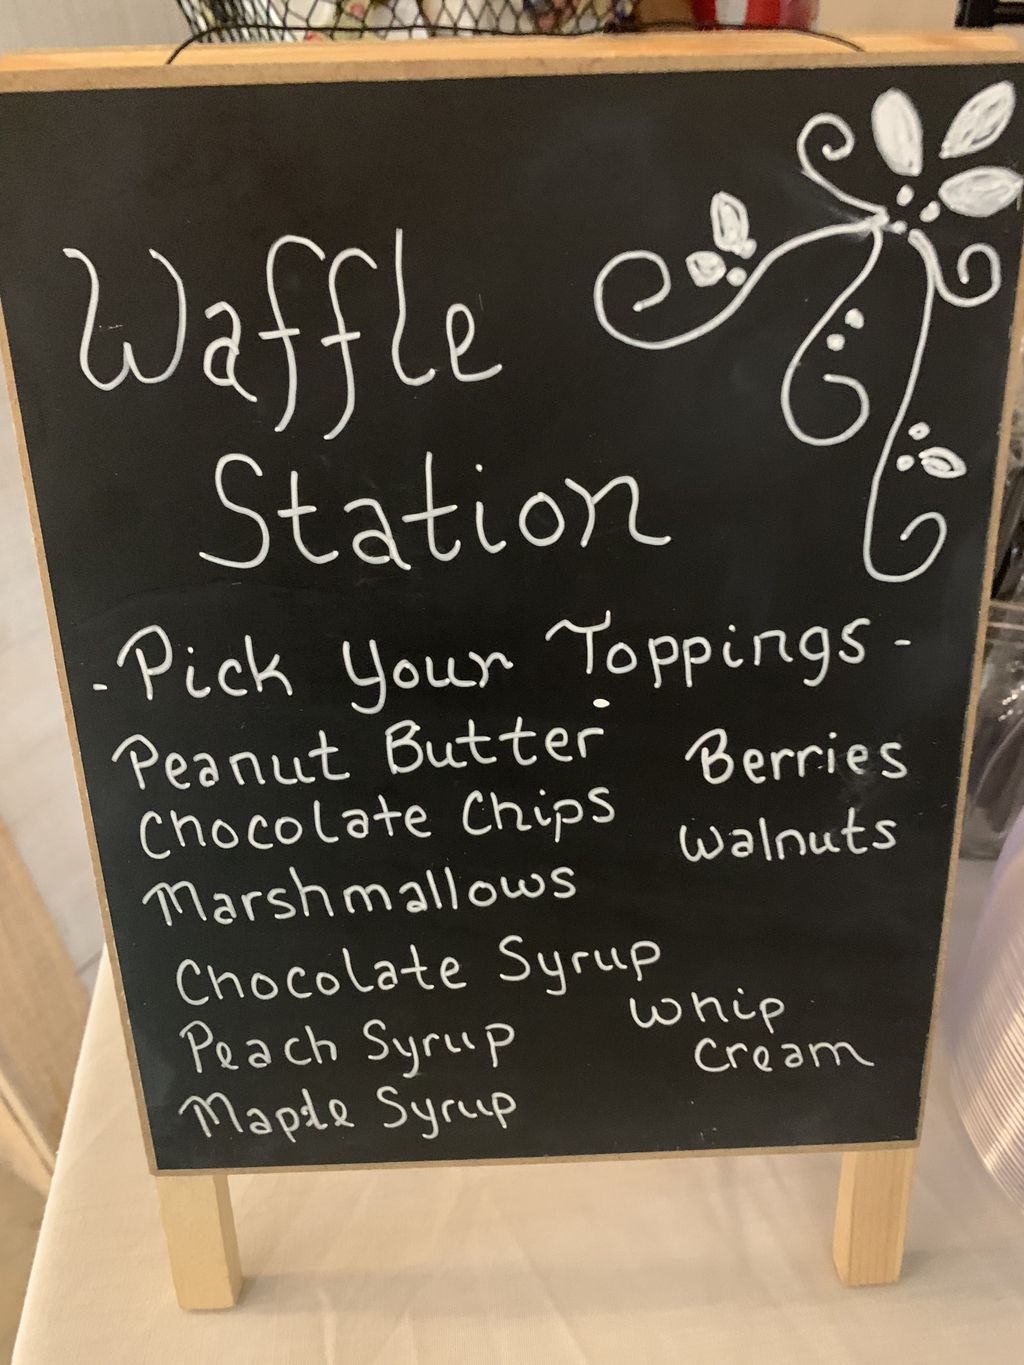 Waffle
Station
- Pick Your Toppings -
Peanut Butter
Chocolate Chips
Marshmallows
Chocolate Syrup
Peach Syrup
Maple Syrup
Berries
Walnuts
Whip
Cream